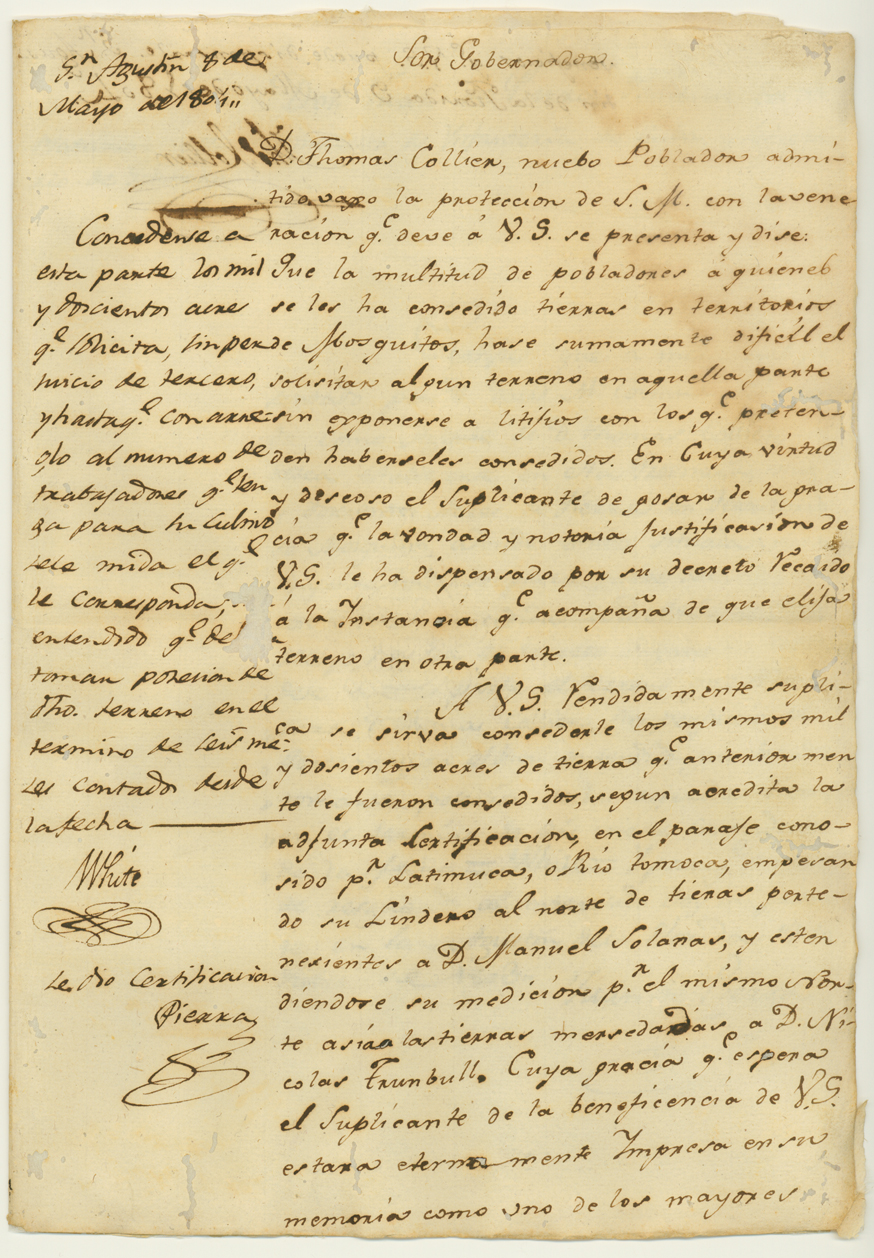 Sor Gobernador.
D. Thomas Collier, nuebo Poblador admi-
tido vaxo la protección de S. M. con la vene
ración q.e deve á V. S. se presenta y dise:
Que la multitud de pobladores á quienes
se les ha consedido tierras en territorios
de Mosquitos, hase sumamente dificil el
solisitar algun terreno en aquella parte
sin exponerse a litijios con los q.e preten-
den haberseles consedidos. En Cuya virtud
y deseoso el Suplicante de gosar de la gra-
cia q.e la vondad y notoria Justificasion de
V.S. le ha dispensado por su decreto Recaido
á la Instancia q.e acompaña de que elija
terreno en otra parte.
A V.S. Rendidamente supli-
ca se sirva consederle los mismos mil
y dosientos acres de tierra q.e anteriormen
te le fueron consedidos, segun acredita la
adjunta Certificación, en el paraje cono-
sido p.r Latimuca, o Rio tomoca, empesan
do su Lindero al norte de tieras perte-
nesientes a D. Manuel Solanas, y esten
diendose su medicion p.r el mismo Nor-
te asia las tierras mersedadas a D. Ni-
colas Trunbull. Cuya gracia q.e espera
el Suplicante de la beneficencia de V.S.
estara eternamente Impresa en su
memoria como uno de los mayores
S.n Agustin 8 de
Mayo de 1804,,
Concedense a
esta parte los mil
y docientos acres
q.e solicita, sin per
juicio de tercero,
y hasta q.e con arre-
glo al numero de
trabajadores q.e ten
ga para su cultivo
sele mida el q.e
le corresponda;
entendido q.e de
tomar posesion de
dho. terreno en el
termino de seis me-
ses contados desde
la fecha
White
Se dio Certificacion
Pierra